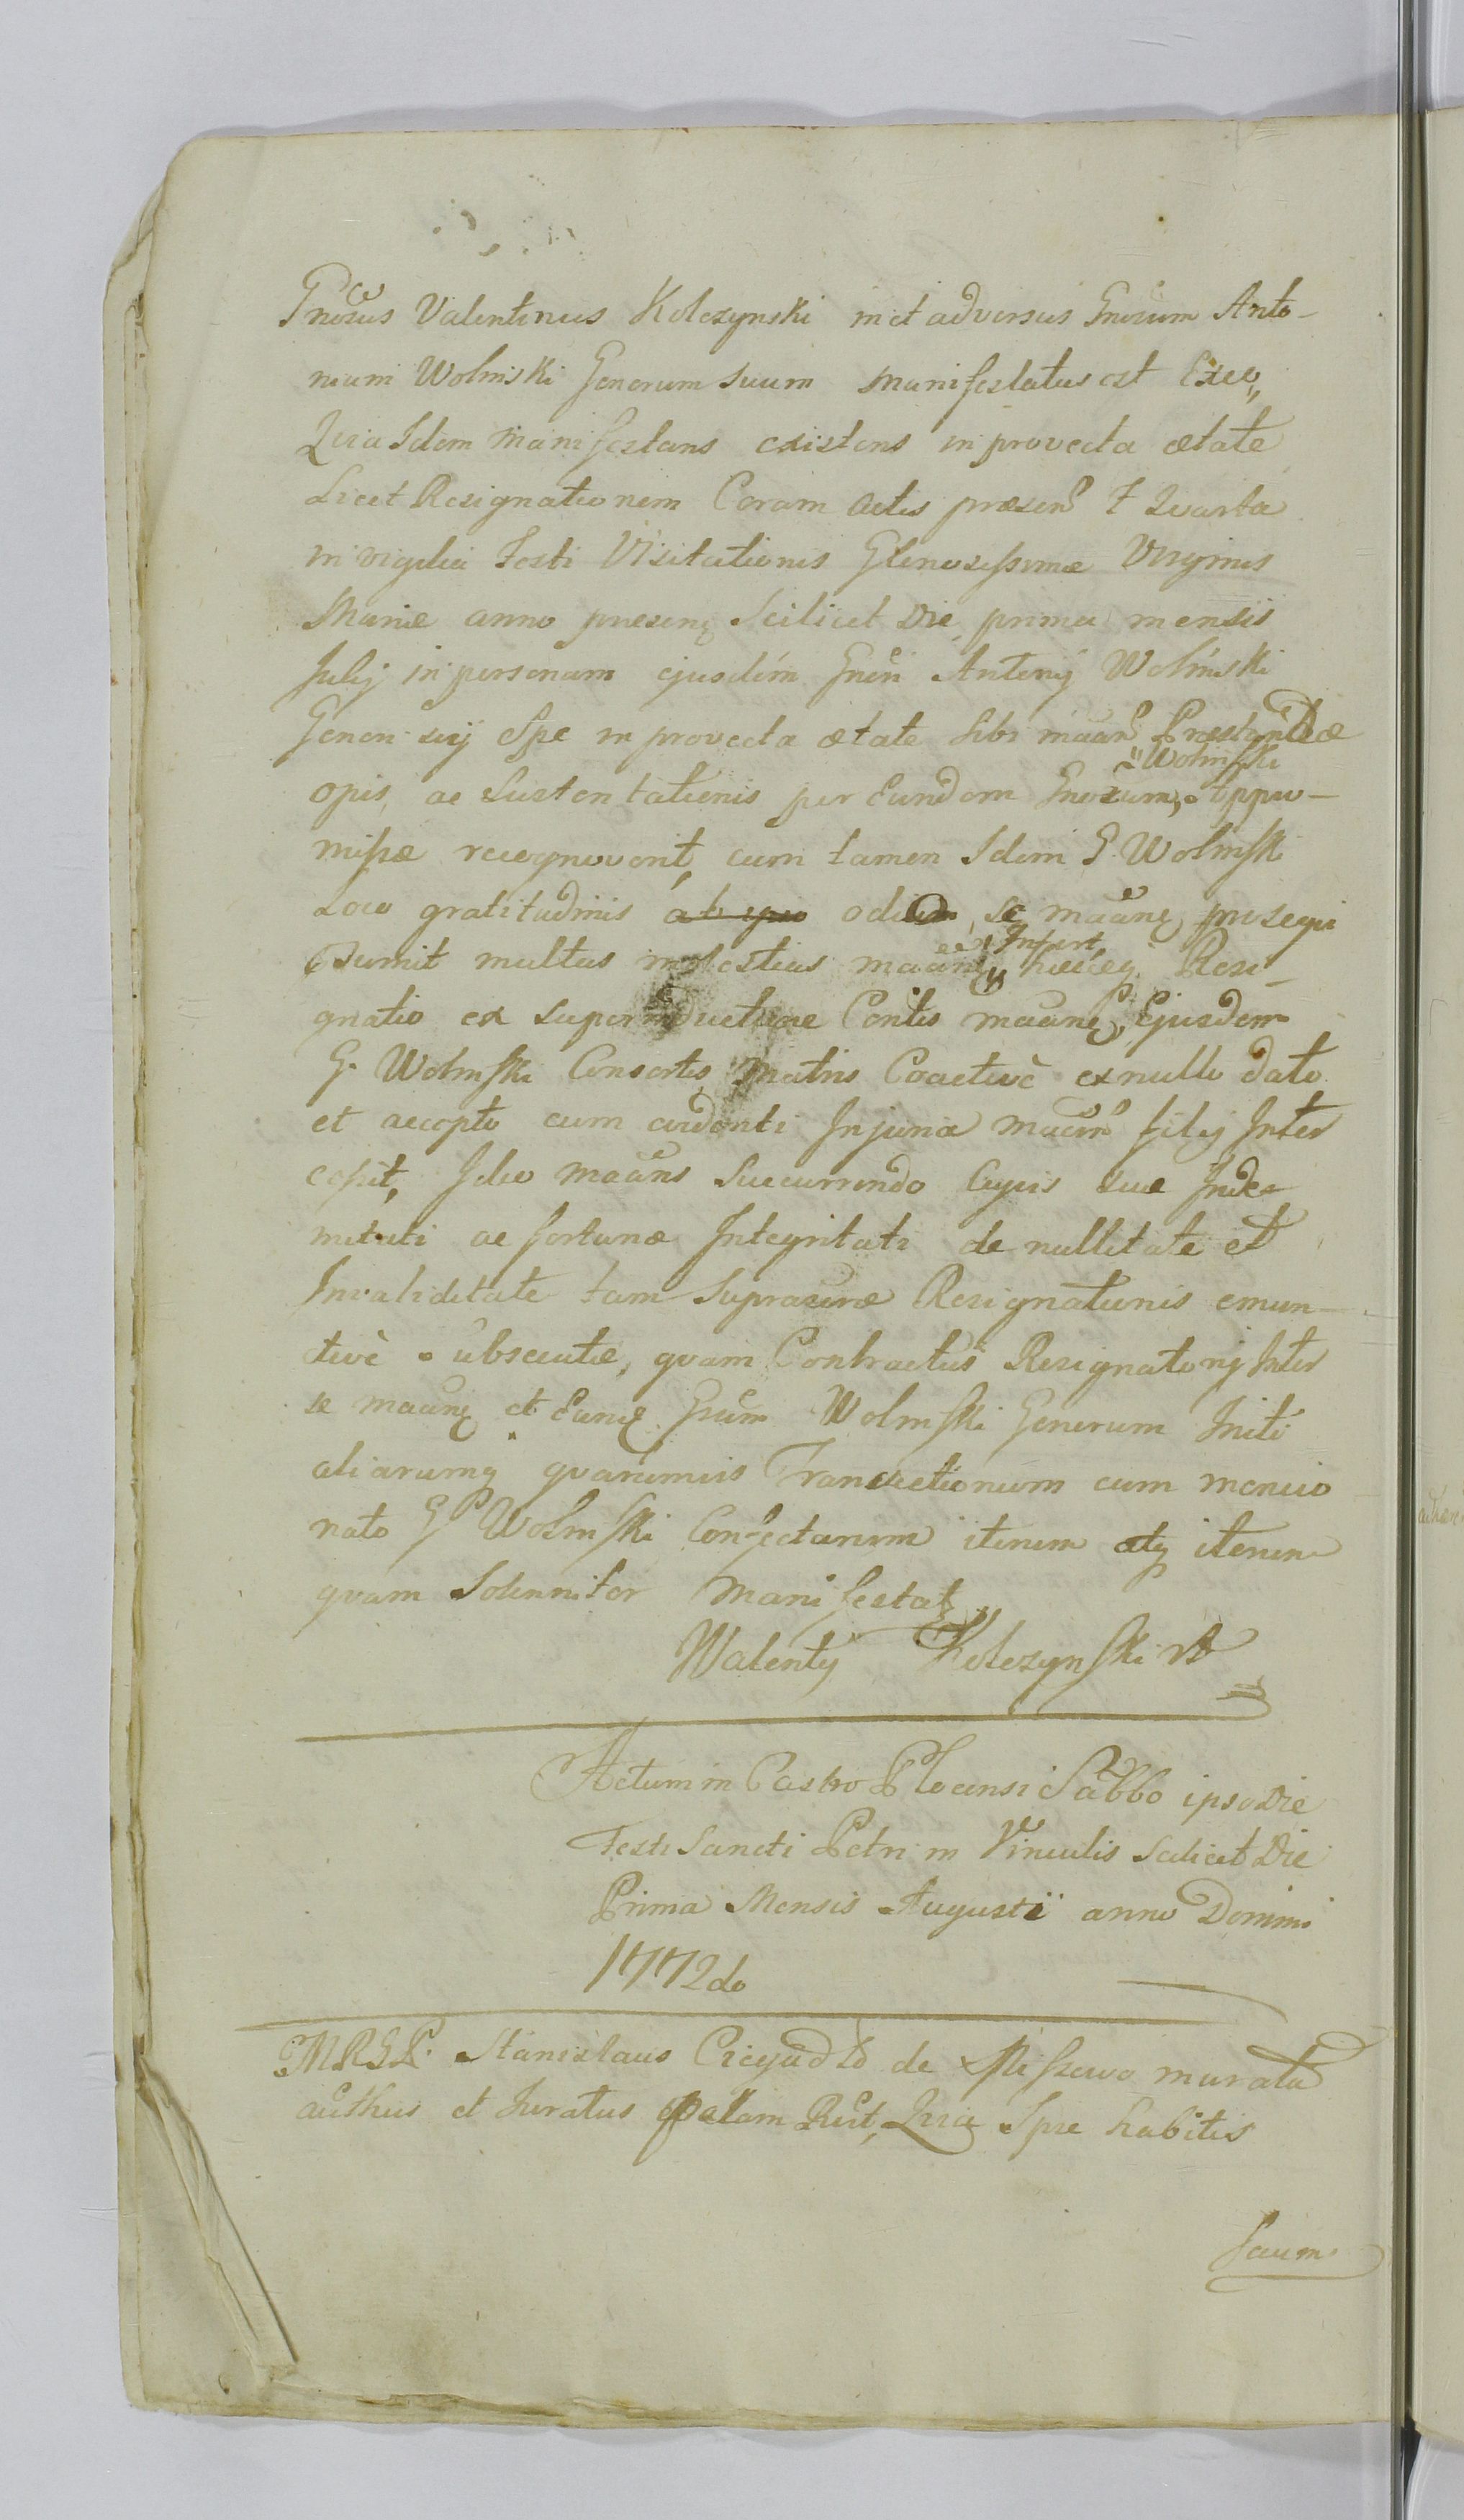 Gnosus Valentinus Kolczynski in et adversus Gnosum Anto-
nium Wolinski Generum suum manifestatus est Exeo,,
Quia Idem Manifestans existens in provecta ætate
Licet Resignationem Coram Actis præsen F Quarta
in vigilia Festi Visitationis Gloriosissimæ Virginis
Mariæ anno præsenę Scilicet Die prima mensis
Julij in personam ejusdem Gnėri Antonij Wolinski
Generi sui Spe in provecta ætate sibi maan Præstandæ
opis, ac Sustentationis per Eundem Gnosum, Wolinski oppro-
missæ recognoverit, cum tamen Idem G. Wolinski
Loco gratitudinis ab ipso odium se maanę prosequi
sumit multas molestias maanę Infert, hæcęq Resi-
gnatio ex superinductione Contis maanę, Ejusdem
G. Wolinski Consortis Matris Coactivè ex nullo dato
et accepto cum ardenti Injuria maan filij Inter
cessit, Ideo maans Succurrendo Legis suæ Inde-
mitati ac fortunæ Integritati de nullitate et
Invaliditate tam Suprascræ Resignationis emun-
ctivè subsecutæ, quam Contractus Resignatorij Inter
se maanę et Eunę Gsum Wolinski Generum Initi
aliarumq quarumvis Transactionum cum mencio
nato G Wolinski Confectarum iterum atq iterum
quam Solenniter Manifestat
Walenty Kolczynski
Actum in Castro Plocensi Sabbo ipso Die
Festi Sancti Petri in Vinculis Scilicet Die
Prima Mensis Augusti anno Domini
1772do
MRGP. Stanislaus de murata
authus et Juratus palam Rcit, Quia Ipse habitis